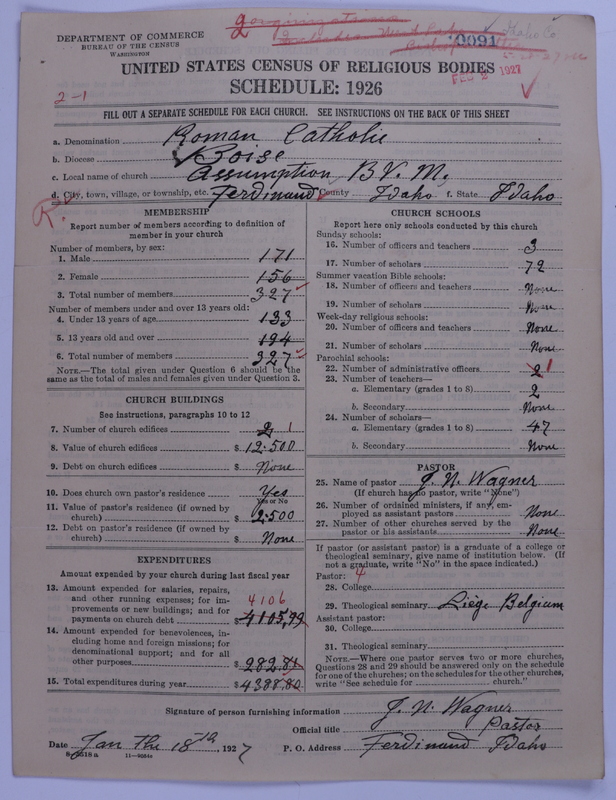 2 organizations
Idaho Co
DEPARTMENT OF COMMERCE
BUREAU OF THE CENSUS
WASHINGTON
10091
UNITED STATES CENSUS OF RELIGIOUS BODIES
SCHEDULE: 1926
FEB 2 1927
2-1
FILL OUT A SEPARATE SCHEDULE FOR EACH CHURCH. SEE INSTRUCTIONS ON THE BACK OF THIS SHEET
a. Denomination Roman Catholic
b. Diocese Boise
c. Local name of church Assumption B.V.M.
d. City, town, village, or township, etc. Ferdinand County Idaho f. State Idaho
R.
MEMBERSHIP
Report number of members according to definition of
member in your church
Number of members, by sex:
1. Male 171
2. Female 156
3. Total number of members 327
Number of members under and over 13 years old:
4. Under 13 years of age 133
5. 13 years old and over 194
6. Total number of members 327
NOTE.—The total given under Question 6 should be the
same as the total of males and females given under Question 3.
CHURCH BUILDINGS
See instructions, paragraphs 10 to 12
7. Number of church edifices 2 1
8. Value of church edifices $ 12.500
9. Debt on church edifices $ None
10. Does church own pastor's residence Yes
Yes or No
11. Value of pastor's residence (if owned by
church) $ 2.500
12. Debt on pastor's residence (if owned by
church) $ None
EXPENDITURES
Amount expended by your church during last fiscal year
13. Amount expended for salaries, repairs,
and other running expenses; for im-
provements or new buildings; and for
payments on church debt $ 4105,99
4106
14. Amount expended for benevolences, in-
cluding home and foreign missions; for
denominational support; and for all
other purposes $ 282.81
15. Total expenditures during year $ 4388.80
CHURCH SCHOOLS
Report here only schools conducted by this church
Sunday schools:
16. Number of officers and teachers 3
17. Number of scholars 72
Summer vacation Bible schools:
18. Number of officers and teachers None
19. Number of scholars None
Week-day religious schools:
20. Number of officers and teachers None
21. Number of scholars None
Parochial schools:
22. Number of administrative officers 2 1
23. Number of teachers—
a. Elementary (grades 1 to 8) 2
b. Secondary None
24. Number of scholars—
a. Elementary (grades 1 to 8) 47
b. Secondary None
PASTOR
25. Name of pastor J. N. Wagner
(If church has no pastor, write "None")
26. Number of ordained ministers, if any, em-
ployed as assistant pastors None
27. Number of other churches served by the
pastor or his assistants None
If pastor (or assistant pastor) is a graduate of a college or
theological seminary, give name of institution below. (If
not a graduate, write "No" in the space indicated.)
Pastor: 4
28. College
29. Theological seminary Liège Belgium
Assistant pastor:
30. College
31. Theological seminary
NOTE.—Where one pastor serves two or more churches,
Questions 28 and 29 should be answered only on the schedule
for one of the churches; on the schedules for the other churches,
write "See schedule for church."
Signature of person furnishing information J. N. Wagner
Official title Pastor
Date Jan the 18th, 1927 P. O. Address Ferdinand Idaho